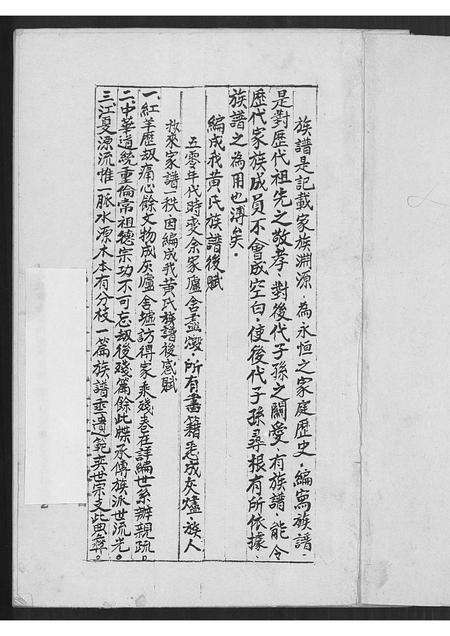 族譜是記載家族淵源．為永恒之家庭歷史．編寫族譜．
是對歷代祖先之敬孝．對後代子孫之關愛．有族譜．能令
歷代家族成員不會成空白．使後代子孫尋根有所依據．
族譜之為用也溥矣。
編成我黃氏族譜後賦
五零年代時变余家廬舍盡燬．所有書籍悉成灰燼．族人
收來家譜一秩．因編成我黃氏族譜後感賦
一、紅羊歷刼痛心餘文物成灰廬舍墟訪得家乘殘卷在詳編世系辦親疏。
二、中華道統重倫常祖德宗功不可忘刼後殘篇餘此牒承傳族派世流光。
三、江夏源流惟一脈水源木本有分枝一篇族譜垂遺範奕世宗支此典彝。